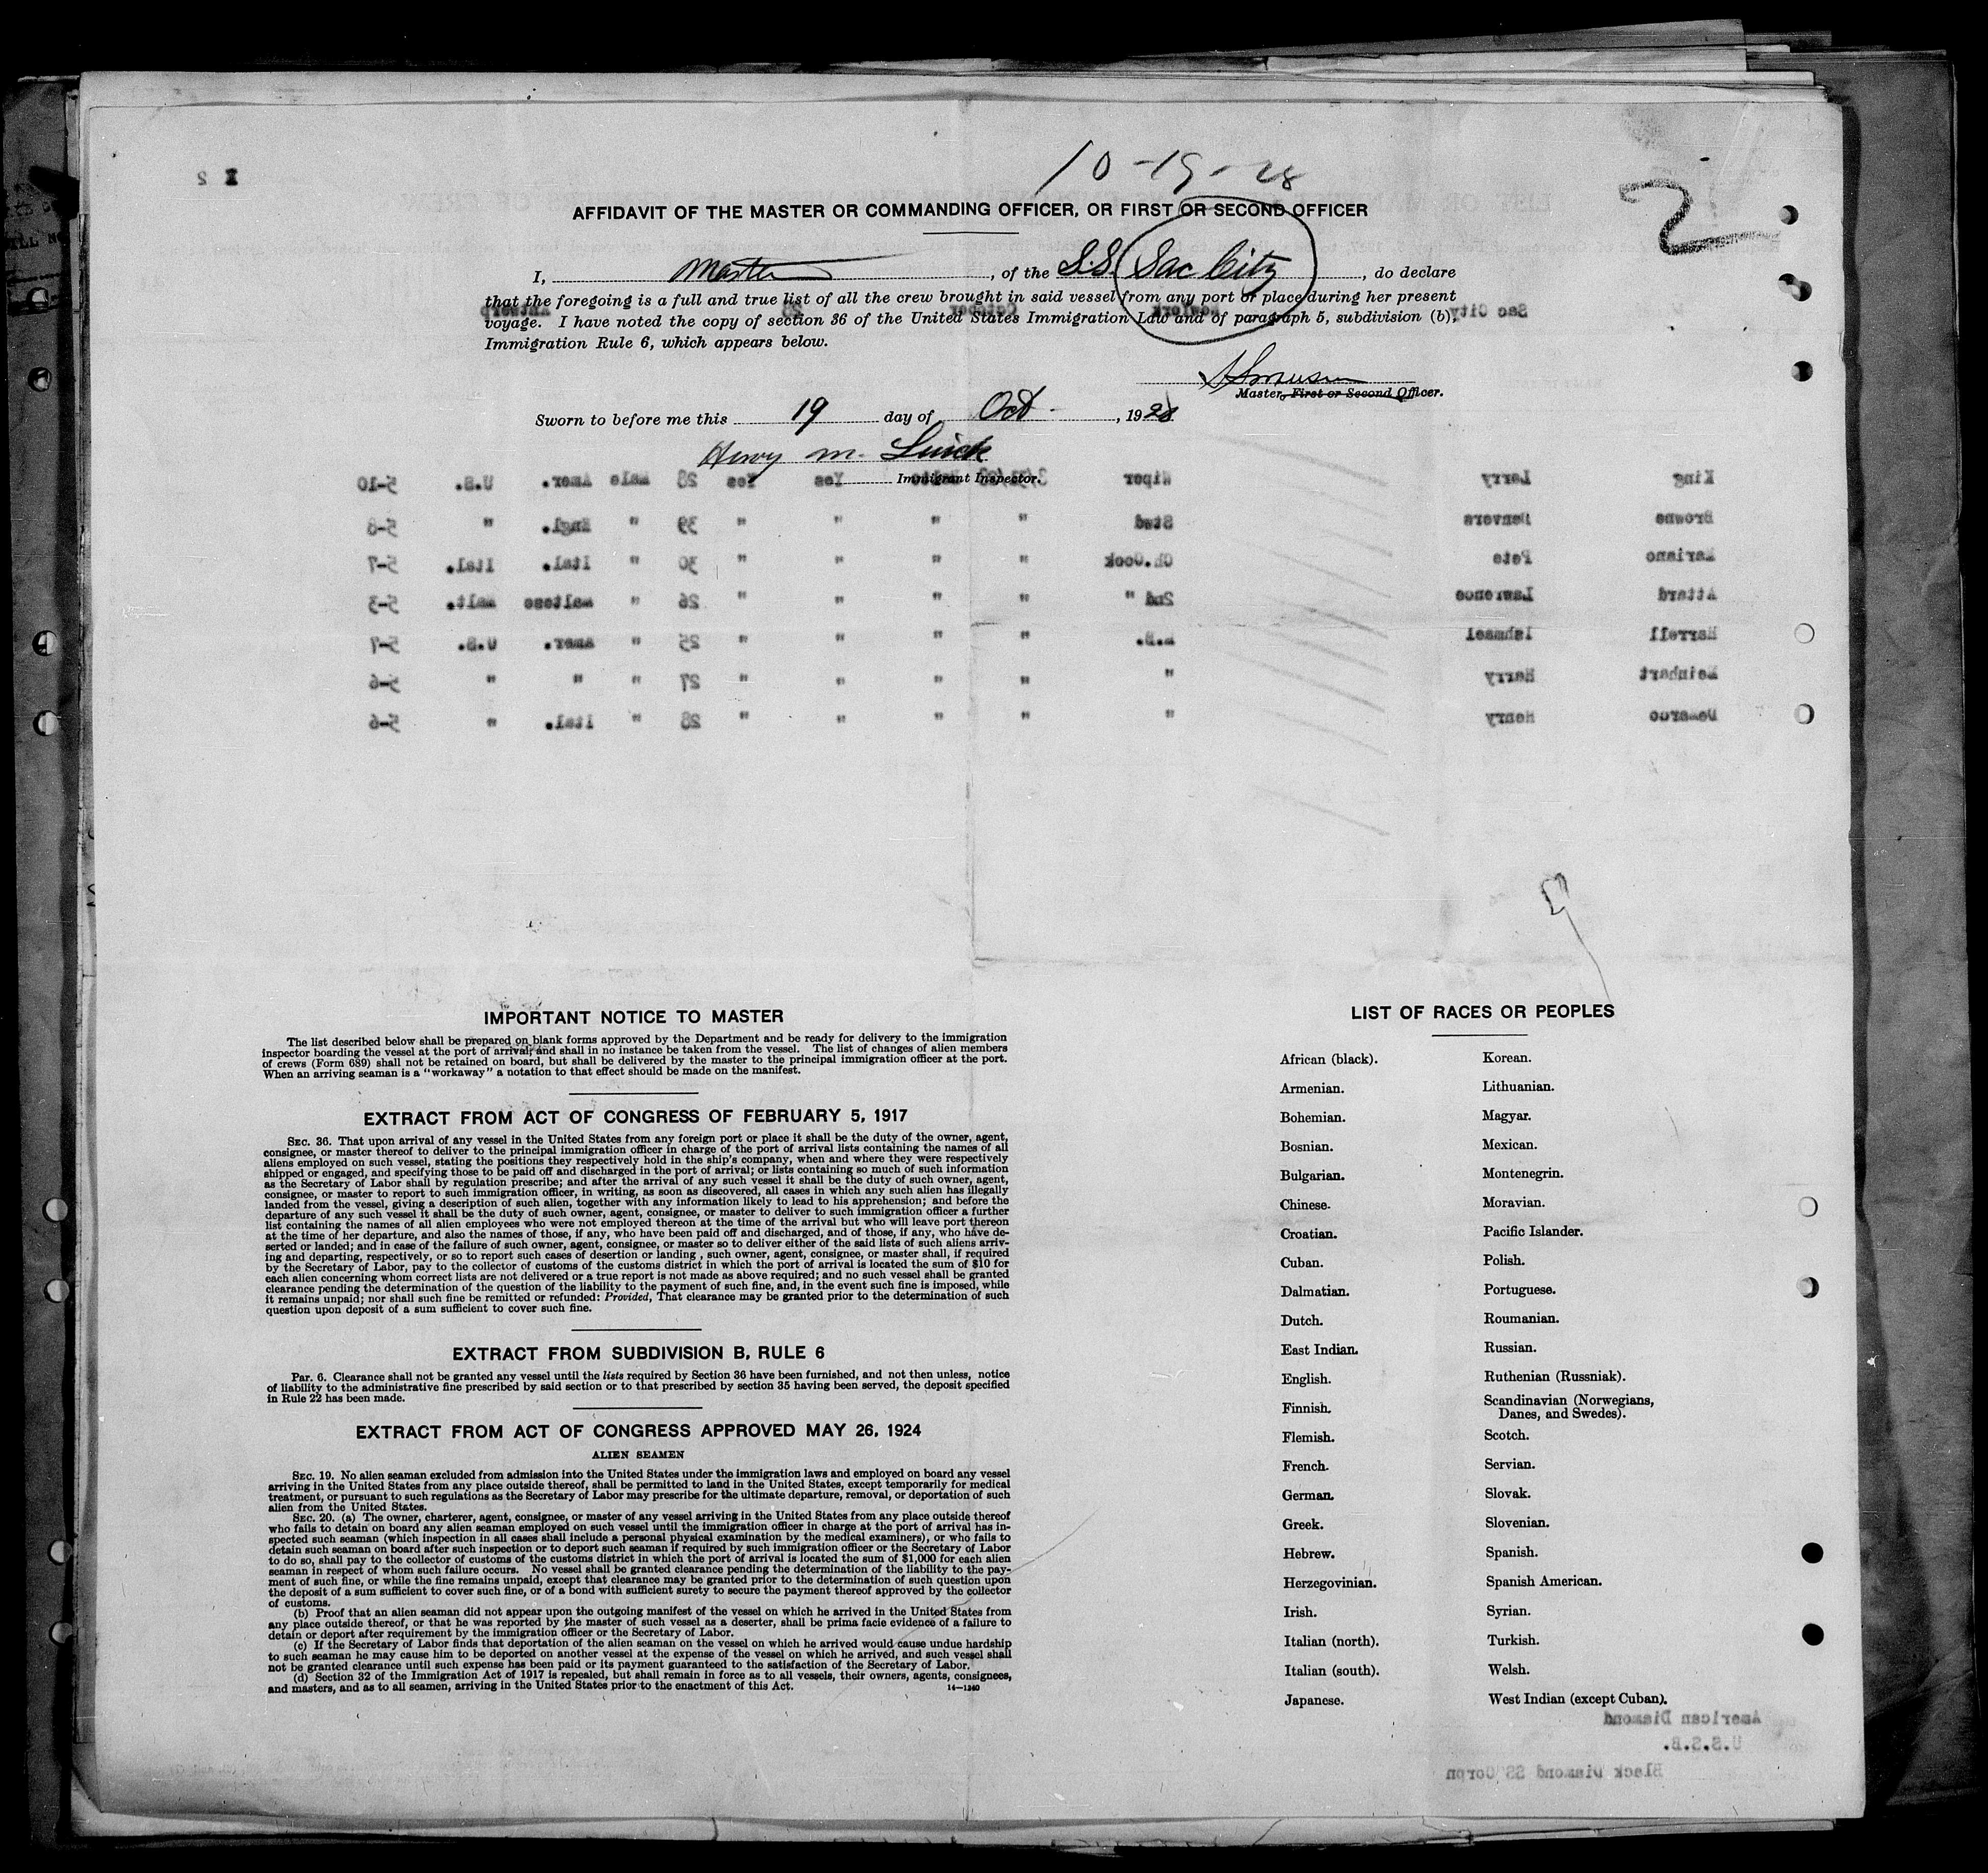 10-19-28
2
AFFIDAVIT OF THE MASTER OR COMMANDING OFFICER, OR FIRST OR SECOND OFFICER
I, Master, of the S.S. Sac City, do declare
that the foregoing is a full and true list of all the crew brought in said vessel from any port or place during her present
voyage. I have noted the copy of section 36 of the United States Immigration Law and of paragraph 5, subdivision (b),
Immigration Rule 6, which appears below.
Master, First or Second Officer.
Sworn to before me this 19 day of Oct., 1928
Henry M.
Immigrant Inspector.
Sac City Newyork October 28 Antwerp
King Larry Wiper Yes Yes 28 Male Amer. U.S. 5-10
Browne Denvers Stwd " " " " 39 " Engl. " 5-8
Mariano Pete Ch.Cook " " " " 30 " Ital. Ital. 5-7
Attard Lawrence 2nd " " " " " 26 " Maltese Malt. 5-3
Harrell Ishmael M.B. " " " " 25 " Amer. U.S. 5-7
Meinhart Harry " " " " " 27 " " " 5-6
Demarco Henry " " " " " 28 " Ital. " 5-6
IMPORTANT NOTICE TO MASTER
The list described below shall be prepared on blank forms approved by the Department and be ready for delivery to the immigration
inspector boarding the vessel at the port of arrival, and shall in no instance be taken from the vessel. The list of changes of alien members
of crews (Form 689) shall not be retained on board, but shall be delivered by the master to the principal immigration officer at the port.
When an arriving seaman is a "workaway" a notation to that effect should be made on the manifest.
EXTRACT FROM ACT OF CONGRESS OF FEBRUARY 5, 1917
SEC. 36. That upon arrival of any vessel in the United States from any foreign port or place it shall be the duty of the owner, agent,
consignee, or master thereof to deliver to the principal immigration officer in charge of the port of arrival lists containing the names of all
aliens employed on such vessel, stating the positions they respectively hold in the ship's company, when and where they were respectively
shipped or engaged, and specifying those to be paid off and discharged in the port of arrival; or lists containing so much of such information
as the Secretary of Labor shall by regulation prescribe; and after the arrival of any such vessel it shall be the duty of such owner, agent,
consignee, or master to report to such immigration officer, in writing, as soon as discovered, all cases in which any such alien has illegally
landed from the vessel, giving a description of such alien, together with any information likely to lead to his apprehension; and before the
departure of any such vessel it shall be the duty of such owner, agent, consignee, or master to deliver to such immigration officer a further
list containing the names of all alien employees who were not employed thereon at the time of the arrival but who will leave port thereon
at the time of her departure, and also the names of those, if any, who have been paid off and discharged, and of those, if any, who have de-
serted or landed; and in case of the failure of such owner, agent, consignee, or master so to deliver either of the said lists of such aliens arriv-
ing and departing, respectively, or so to report such cases of desertion or landing , such owner, agent, consignee, or master shall, if required
by the Secretary of Labor, pay to the collector of customs of the customs district in which the port of arrival is located the sum of $10 for
each alien concerning whom correct lists are not delivered or a true report is not made as above required; and no such vessel shall be granted
clearance pending the determination of the question of the liability to the payment of such fine, and, in the event such fine is imposed, while
it remains unpaid; nor shall such fine be remitted or refunded: Provided, That clearance may be granted prior to the determination of such
question upon deposit of a sum sufficient to cover such fine.
EXTRACT FROM SUBDIVISION B, RULE 6
Par. 6. Clearance shall not be granted any vessel until the lists required by Section 36 have been furnished, and not then unless, notice
of liability to the administrative fine prescribed by said section or to that prescribed by section 35 having been served, the deposit specified
in Rule 22 has been made.
EXTRACT FROM ACT OF CONGRESS APPROVED MAY 26, 1924
ALIEN SEAMEN
SEC. 19. No alien seaman excluded from admission into the United States under the immigration laws and employed on board any vessel
arriving in the United States from any place outside thereof, shall be permitted to land in the United States, except temporarily for medical
treatment, or pursuant to such regulations as the Secretary of Labor may prescribe for the ultimate departure, removal, or deportation of such
alien from the United States.
SEC. 20. (a) The owner, charterer, agent, consignee, or master of any vessel arriving in the United States from any place outside thereof
who fails to detain on board any alien seaman employed on such vessel until the immigration officer in charge at the port of arrival has in-
spected such seaman (which inspection in all cases shall include a personal physical examination by the medical examiners), or who fails to
detain such seaman on board after such inspection or to deport such seaman if required by such immigration officer or the Secretary of Labor
to do so, shall pay to the collector of customs of the customs district in which the port of arrival is located the sum of $1,000 for each alien
seaman in respect of whom such failure occurs. No vessel shall be granted clearance pending the determination of the liability to the pay-
ment of such fine, or while the fine remains unpaid, except that clearance may be granted prior to the determination of such question upon
the deposit of a sum sufficient to cover such fine, or of a bond with sufficient surety to secure the payment thereof approved by the collector
of customs.
(b) Proof that an alien seaman did not appear upon the outgoing manifest of the vessel on which he arrived in the United States from
any place outside thereof, or that he was reported by the master of such vessel as a deserter, shall be prima facie evidence of a failure to
detain or deport after requirement by the immigration officer or the Secretary of Labor.
(c) If the Secretary of Labor finds that deportation of the alien seaman on the vessel on which he arrived would cause undue hardship
to such seaman he may cause him to be deported on another vessel at the expense of the vessel on which he arrived, and such vessel shall
not be granted clearance until such expense has been paid or its payment guaranteed to the satisfaction of the Secretary of Labor.
(d) Section 32 of the Immigration Act of 1917 is repealed, but shall remain in force as to all vessels, their owners, agents, consignees,
and masters, and as to all seamen, arriving in the United States prior to the enactment of this Act. 14—1240
LIST OF RACES OR PEOPLES
African (black).
Armenian.
Bohemian.
Bosnian.
Bulgarian.
Chinese.
Croatian.
Cuban.
Dalmatian.
Dutch.
East Indian.
English.
Finnish.
Flemish.
French.
German.
Greek.
Hebrew.
Herzegovinian.
Irish.
Italian (north).
Italian (south).
Japanese.
Korean.
Lithuanian.
Magyar.
Mexican.
Montenegrin.
Moravian.
Pacific Islander.
Polish.
Portuguese.
Roumanian.
Russian.
Ruthenian (Russniak).
Scandinavian (Norwegians,
Danes, and Swedes).
Scotch.
Servian.
Slovak.
Slovenian.
Spanish.
Spanish American.
Syrian.
Turkish.
Welsh.
West Indian (except Cuban).
American Diamond
U.S.S.B.
Black Diamond SS Corpn